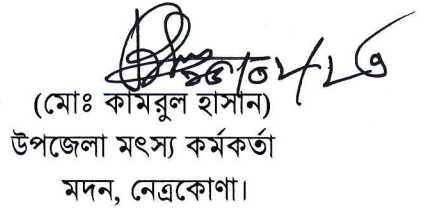 (মোঃ কামরুল হাসান)
উপজেলা মৎস্য কর্মকর্তা
মদন, নেত্রকোণা।